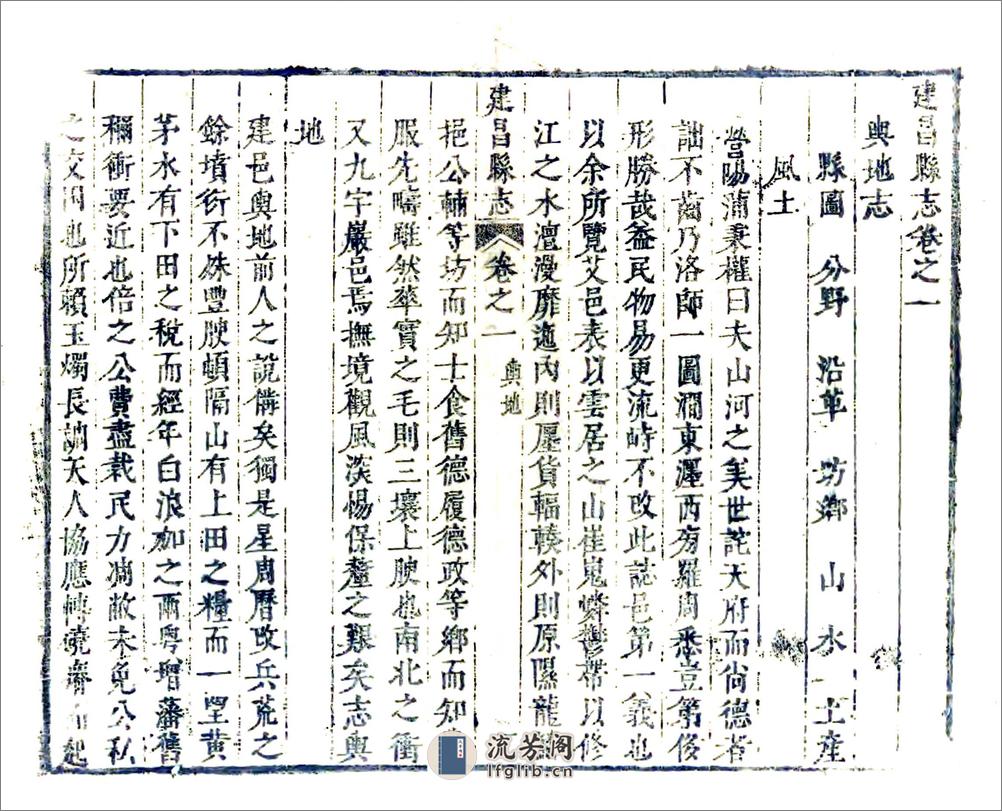 建昌縣志卷之一
輿地志
縣圖 分野 沿革 坊鄉 山水 土產
風土
營陽蒲秉權曰夫山河之美世詫天府而尚德者
詘不齒乃洛師一圖澗東瀍西旁羅周悉豈第侈
形勝哉蓋民物易更流峙不改此誌邑第一義也
以余所覽艾邑表以雲居之山崔嵬燐鬱帶以修
江之水澶漫靡迤內則廛貨輻輳外則原隰龍
建昌縣志 卷之一 輿地
挹公輔等坊而知士食舊德履德政等鄉而知
服先疇雖然華實之毛則三壤上腴也南北之衝
又九宇嚴邑焉撫境觀風淡惕保釐之艱矣志輿
地
建邑輿地前人之說備矣獨是星周曆改兵荒之
餘墳衍不殊豐腴頓隔山有上田之糧而一望黃
茅水有下田之稅而經年白浪加之兩粵增藩舊
稱衝要近也倍之公費盡裁民力凋敝未免公私
之交困也所賴玉燭長調天人協應轉澆瘠而起
流芳阁
lfglib.cn